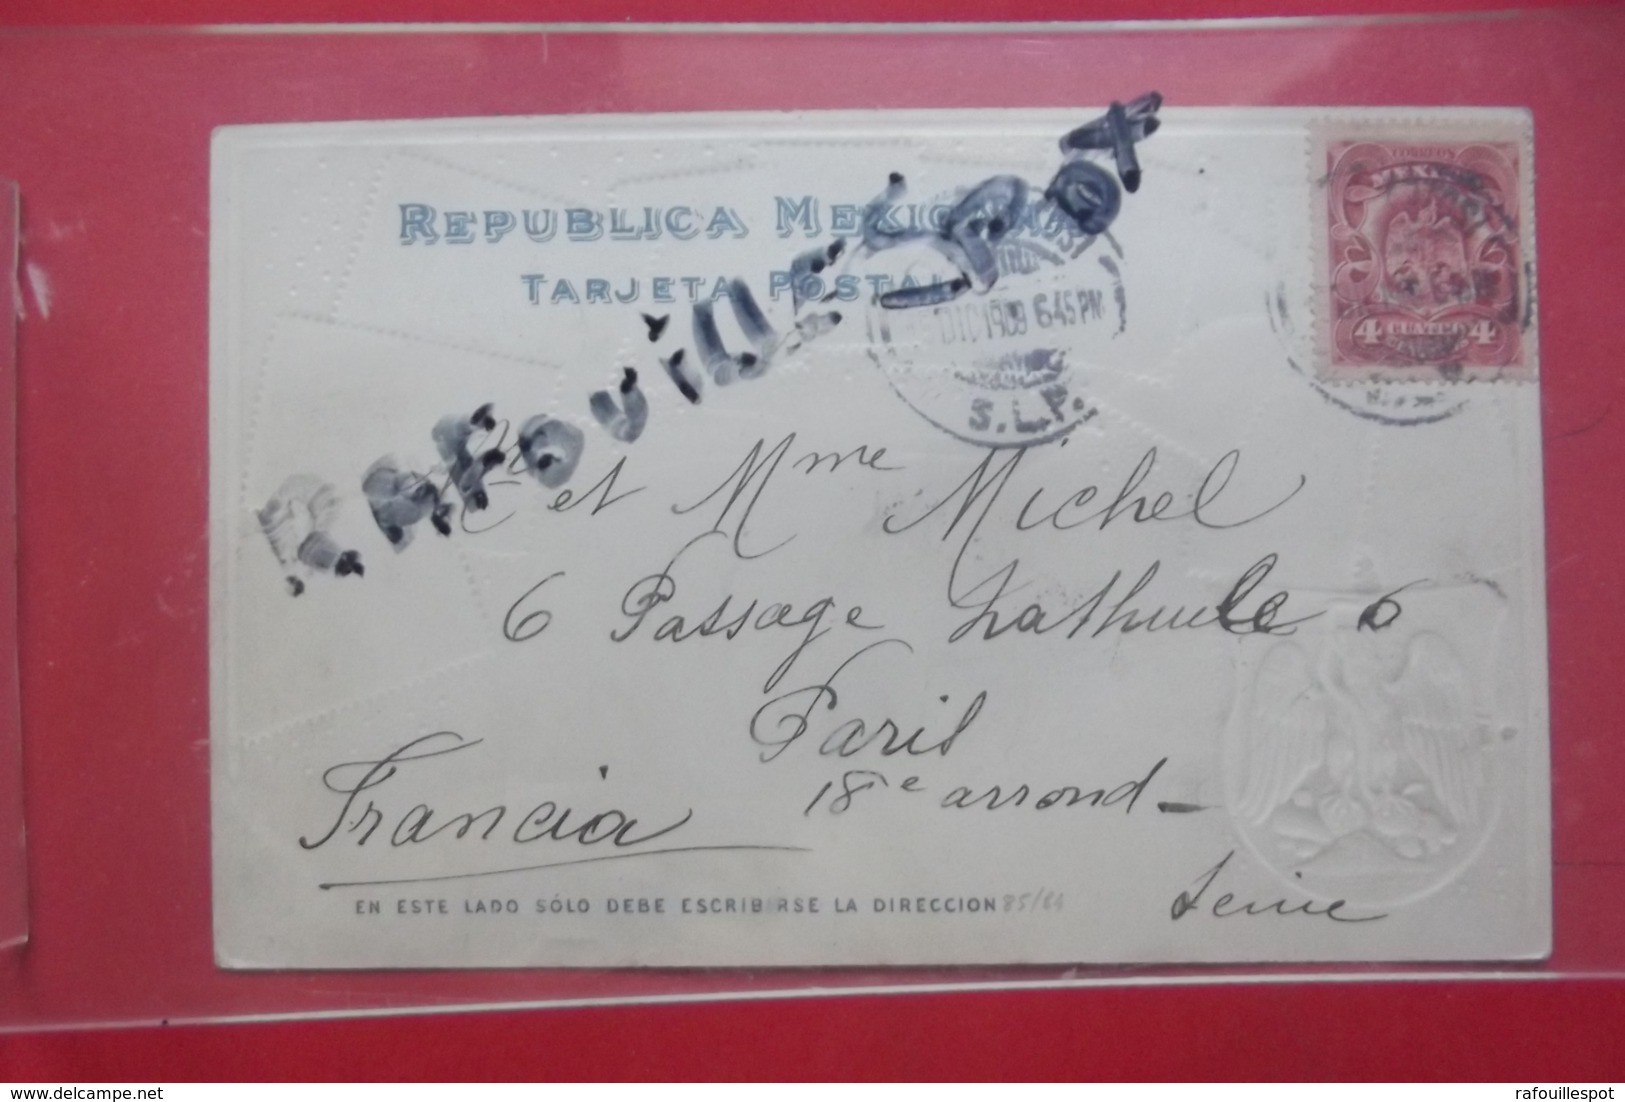 REPUBLICA MEXICANA
TARJETA POSTAL
RAFOUILLESPOT
CORREOS
MEXICO
4 CUATRO 4
DIC 1909 6 45 PM
S.L.P.
Mr et Mme Michel
6 Passage Lathuile 6
Paris
18e arrond
Francia
Seine
EN ESTE LADO SÓLO DEBE ESCRIBIRSE LA DIRECCION
rafouillespot
www.delcampe.net